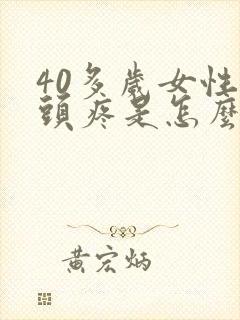 40多歲女性
頭疼是怎麼
黃宏炳